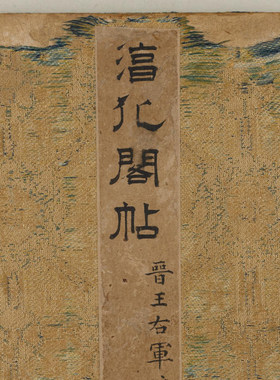 淳化閣帖
晉王右軍